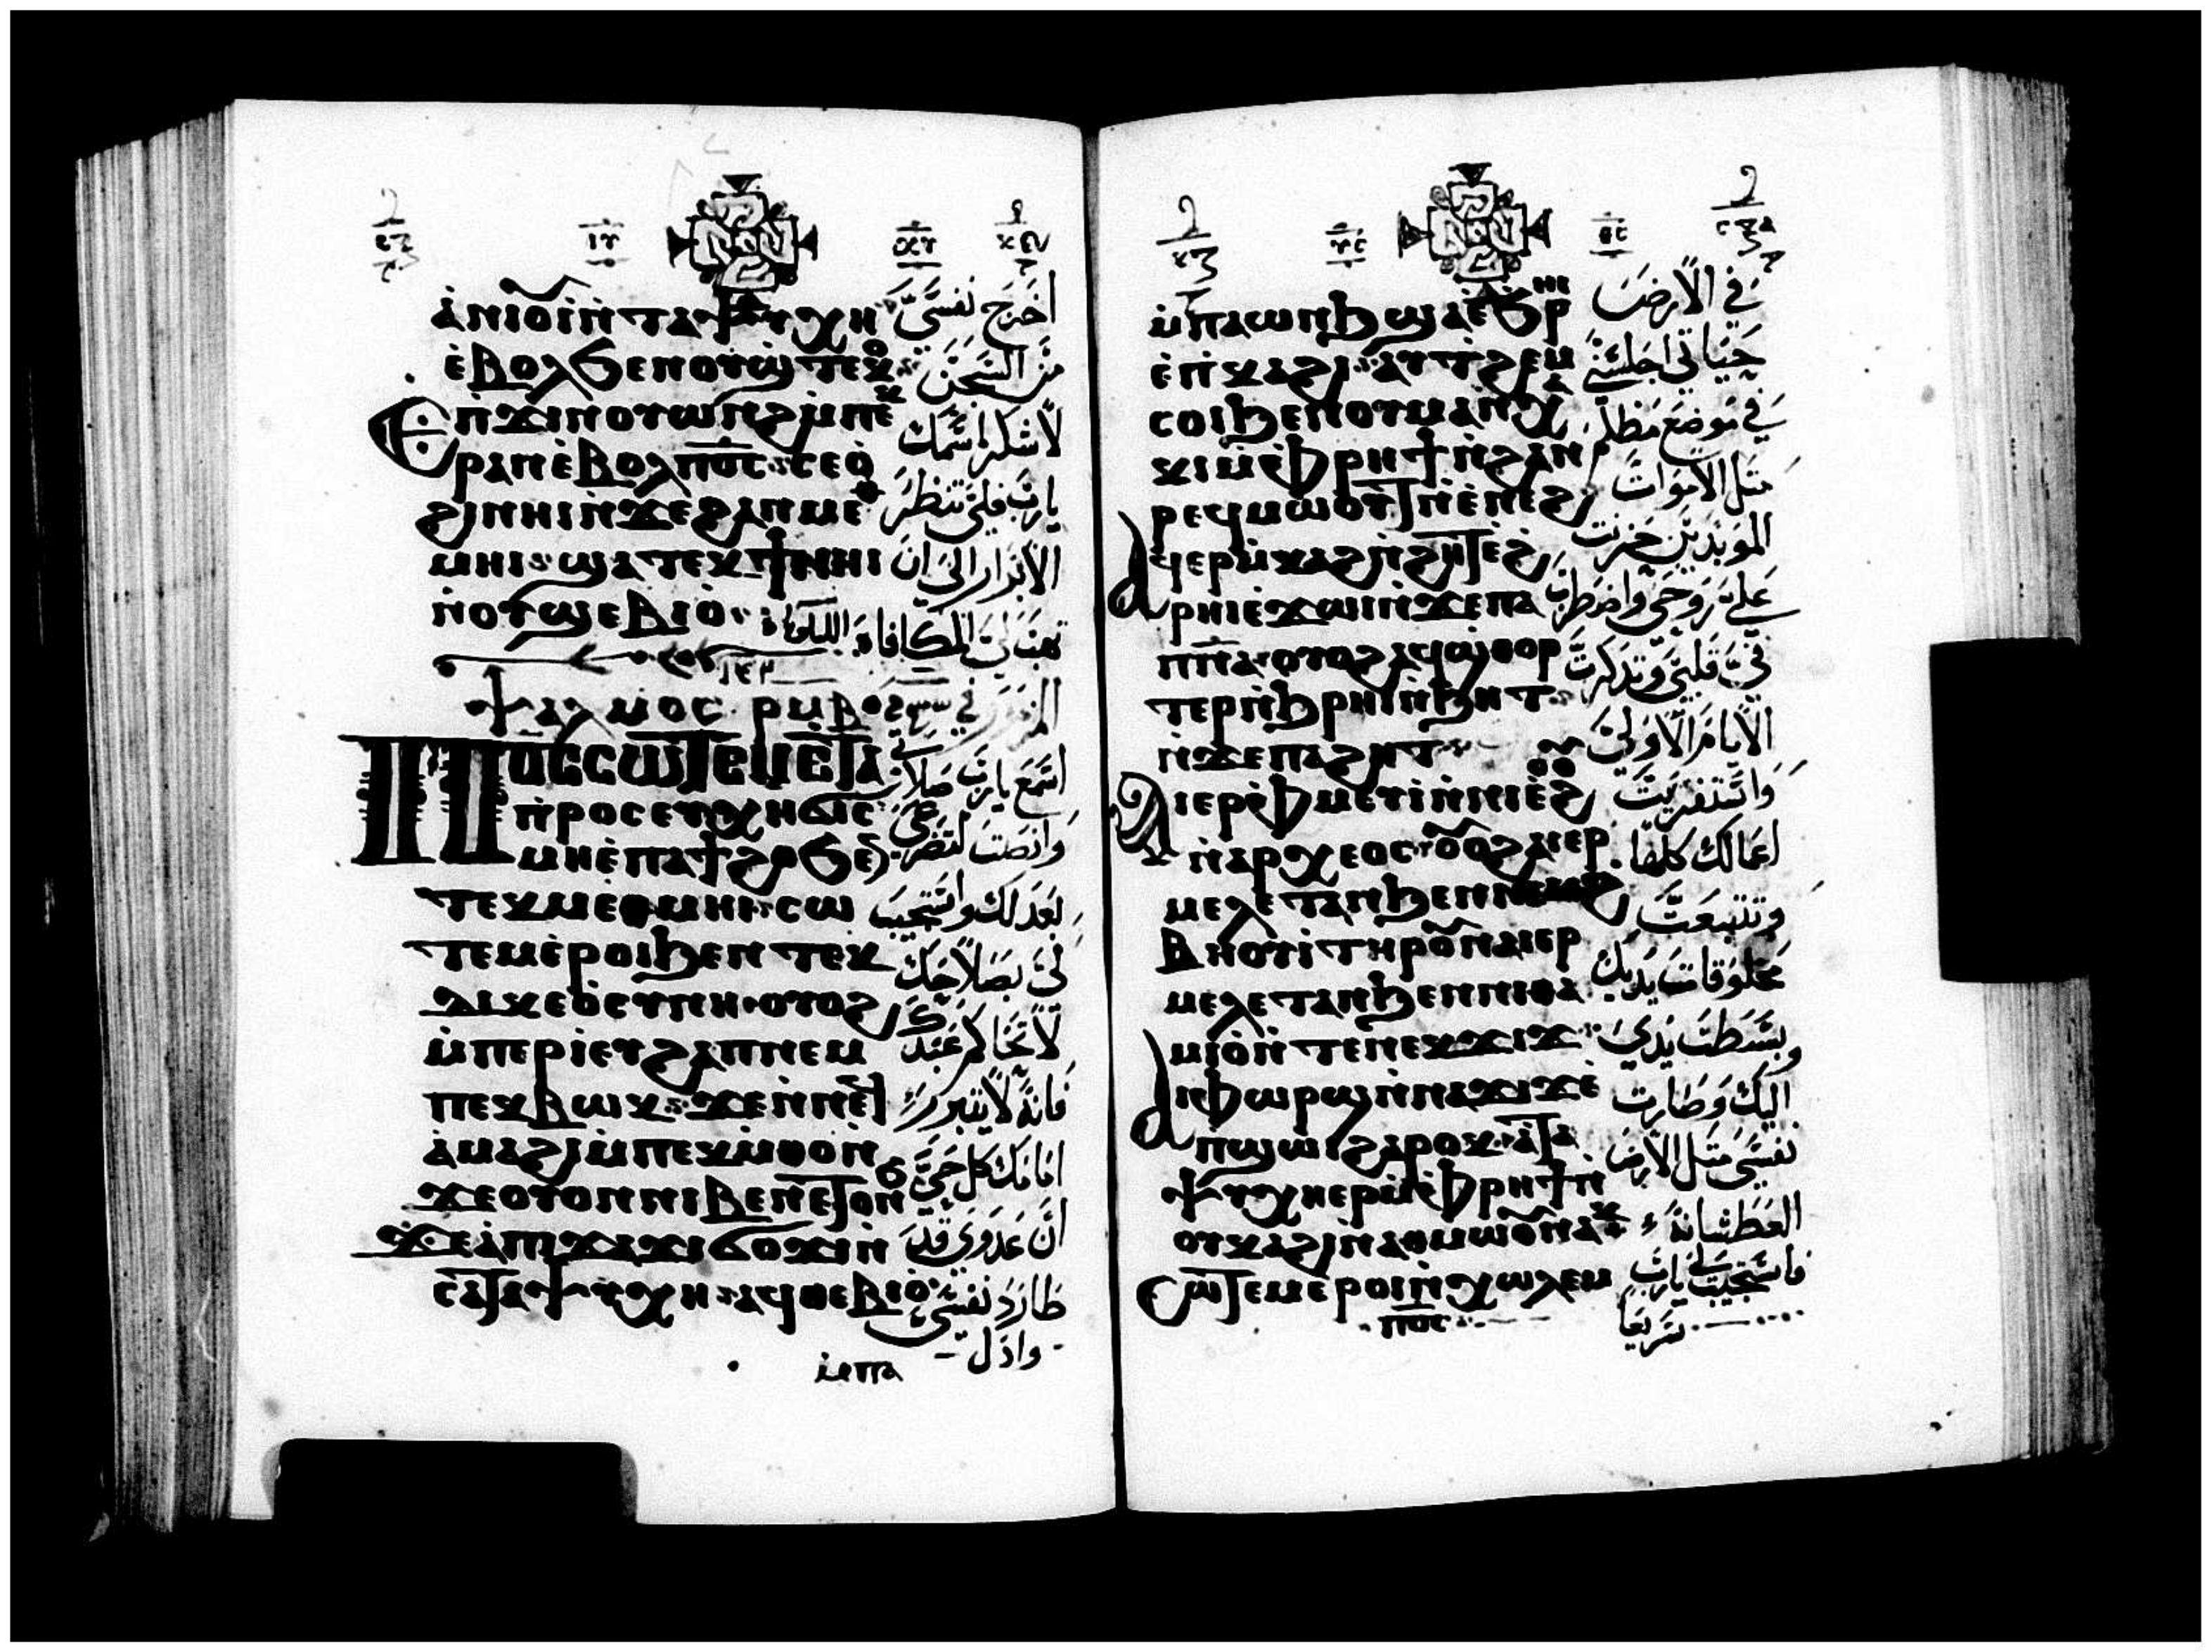 ⲓⲥ ⲭⲥ
ⲁ̀ⲛⲓⲟⲩⲓ̀ⲛ̀ⲧⲁⲯⲩⲭⲏ
ⲉ̀ⲃⲟⲗϧⲉⲛⲟⲩϣ̀ⲧⲉⲕⲟ
Ⲉⲡ̀ϫⲓⲛⲟⲩⲱⲛϩⲙ̀ⲡⲉⲕ
ⲣⲁⲛⲉ̀ⲃⲟⲗⲡⲟ̅ⲥ̅ ⲥⲉⲟ̀
ϩⲓⲛⲏⲓⲛ̀ϫⲉϩⲁⲛⲑⲙⲉ̀
ⲙⲏⲓ ϣⲁⲧⲉⲕϯⲛⲏⲓ
ⲛ̀ⲟⲩϣⲉⲃⲓⲱ̀
ⲯⲁⲗⲙⲟⲥ ⲣⲙⲃ
Ⲡⲟ̅ⲥ̅ⲥⲱⲧⲉⲙⲉ̀ⲧⲁ
ⲡ̀ⲣⲟⲥⲉⲩⲭⲏϭⲓⲥ
ⲙⲏⲉ̀ⲡⲁϯϩⲟϧⲉⲛ
ⲧⲉⲕⲙⲉⲑⲙⲏⲓ ⲥⲱ
ⲧⲉⲙⲉ̀ⲣⲟⲓϧⲉⲛ ⲧⲉⲕ
ⲇⲓⲕⲉⲟ̀ⲥⲩⲛⲏ ⲟⲩⲟϩ
ⲙ̀ⲡⲉⲣⲓ̀ⲉⲩϩⲁⲡⲛⲉⲙ
ⲡⲉⲕⲃⲱⲕ ϫⲉⲛ̀ⲛⲉϥ
ⲑ̀ⲙⲁⲓⲟ̀ ⲙ̀ⲡⲉⲕⲙ̀ⲑⲟⲛ̀
ϫⲉⲟⲩⲟⲛⲛⲓⲃⲉⲛⲉⲧⲟⲛϧ
ϫⲉⲁ̀ⲡϫⲁϫⲓϭⲟϫⲓⲛ̀
ⲥⲁⲧⲁⲯⲩⲭⲏ ⲁϥⲑⲉⲃⲓⲟ̀
ⲙ̀ⲡⲁ
اخرج نفسي
من السجن
لاشكر اسمك
يارب فلي تنظر
الابرار الى ان
تهب لي المكافاة
المزمور
اسمع يارب صلاتي
وانصت لتضرعي
بعدلك واستجيب
لي بصلاحك
لا تحاكم عبدك
فانه لا يتبرر
امامك كل حي
ان عدوي قد
طارد نفسي
واذل
ⲓⲥ ⲭⲥ
ⲙ̀ⲡⲁⲱⲛϧ ϣⲁⲉ̀ϧⲣⲏⲓ
ⲉ̀ⲡ̀ⲕⲁϩⲓ ⲁⲩⲧ̀ϩⲉⲙ
ⲥⲟⲓϧⲉⲛⲟⲩⲙⲁⲛ̀ⲭⲁ
ⲕⲓⲙ̀ⲫⲣⲏϯⲛ̀ϩⲁⲛ
ⲣⲉϥⲙⲱⲟⲩⲧⲛ̀ⲉ̀ⲛⲉϩ
ⲁϥⲉⲣⲙ̀ⲕⲁϩⲛ̀ϩⲏⲧⲉ̀ϩ
ⲣⲏⲓⲉ̀ϫⲱⲓⲛ̀ϫⲉⲡⲁ
ⲡⲛ̅ⲁ̅ ⲟⲩⲟϩⲁϥϣ̀ⲑⲟⲣ
ⲧⲉⲣⲛ̀ϧⲣⲏⲓⲛ̀ϧⲏⲧ
ⲛ̀ϫⲉⲡⲁϩⲏⲧ
Ⲁⲓⲉⲣⲫ̀ⲙⲉⲩⲓ̀ⲛ̀ⲛⲓⲉ̀ϩⲟⲟⲩ
ⲛ̀ⲁⲣⲭⲉⲟⲥ ⲟⲩⲟϩⲁⲓⲉⲣ
ⲙⲉⲗⲉⲧⲁⲛϧⲉⲛⲛⲉⲕϩ
ⲃⲏⲟⲩⲓ̀ⲧⲏⲣⲟⲩⲛⲁⲓⲉⲣ
ⲙⲉⲗⲉⲧⲁⲛϧⲉⲛⲛⲓⲑⲁ
ⲙⲓⲟ̀ⲛ̀ⲧⲉⲛⲉⲕϫⲓϫ
ⲁⲓⲫⲱⲣϣⲛ̀ⲛⲁϫⲓϫⲉ̀
ⲡϣⲱⲓϩⲁⲣⲟⲕ ⲁ̀ⲧⲁ
ⲯⲩⲭⲏⲉⲣⲙ̀ⲫⲣⲏϯⲛ̀
ⲟⲩⲕⲁϩⲓⲛ̀ⲁⲑⲙⲱⲟⲩⲛⲁⲕ
Ⲥⲱⲧⲉⲙⲉ̀ⲣⲟⲓⲛ̀ⲭⲱⲗⲉⲙ
ⲡⲟ̅ⲥ̅
في الارض
حياتي اجلسني
في موضع مظلم
مثل الاموات
المؤبدين حزنت
علي روحي واضطرب
في قلبي وتذكرت
الايام الاولى
اعمالك كلها
مخلوقات يديك
بسطت يدي
اليك وصارت
نفسي مثل الارض
العطشانة
فاستجيب لي يارب
سريعا